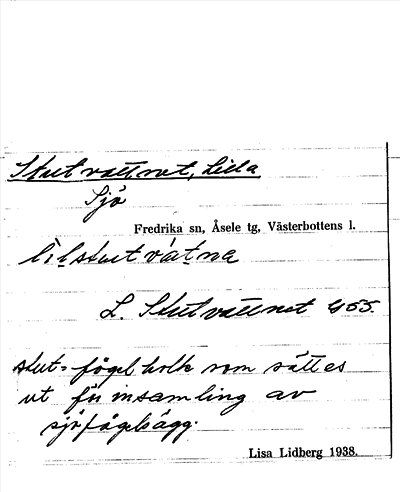 Stutvattnet, Lilla
Sjö
Fredrika sn, Åsele tg, Västerbottens l.
lìlstutvátna
L. Stutvattnet G55.
stut = fågelholk som sättes
ut för insamling av
sjöfågelägg.
Lisa Lidberg 1938.